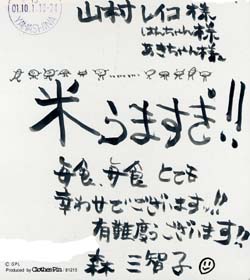 01.10.1.18-24
山村レイコ様
はんちゃん様
あきちゃん様
米うますぎ!!
毎食、毎食 とても
幸わせでございますッ!!
有難度うございますッ!!
森 三智子
© GPL
Produced by Clothes Pin / 81213